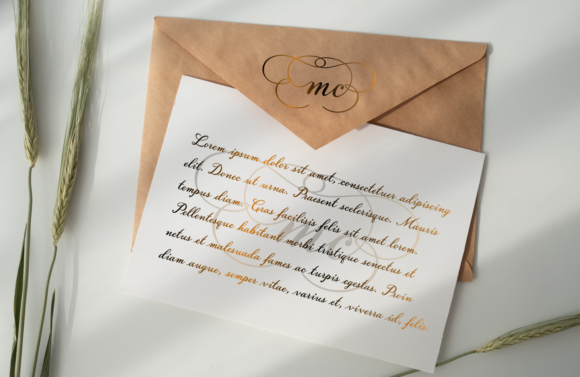 mc
Lorem ipsum dolor sit amet, consectetuer adipiscing
elit. Donec ut urna. Praesent scelerisque. Mauris
tempus diam. Cras facilisis felis sit amet lorem.
Pellentesque habitant morbi tristique senectus et
netus et malesuada fames ac turpis egestas. Proin
diam augue, semper vitae, varius et, viverra id, felis.
mc